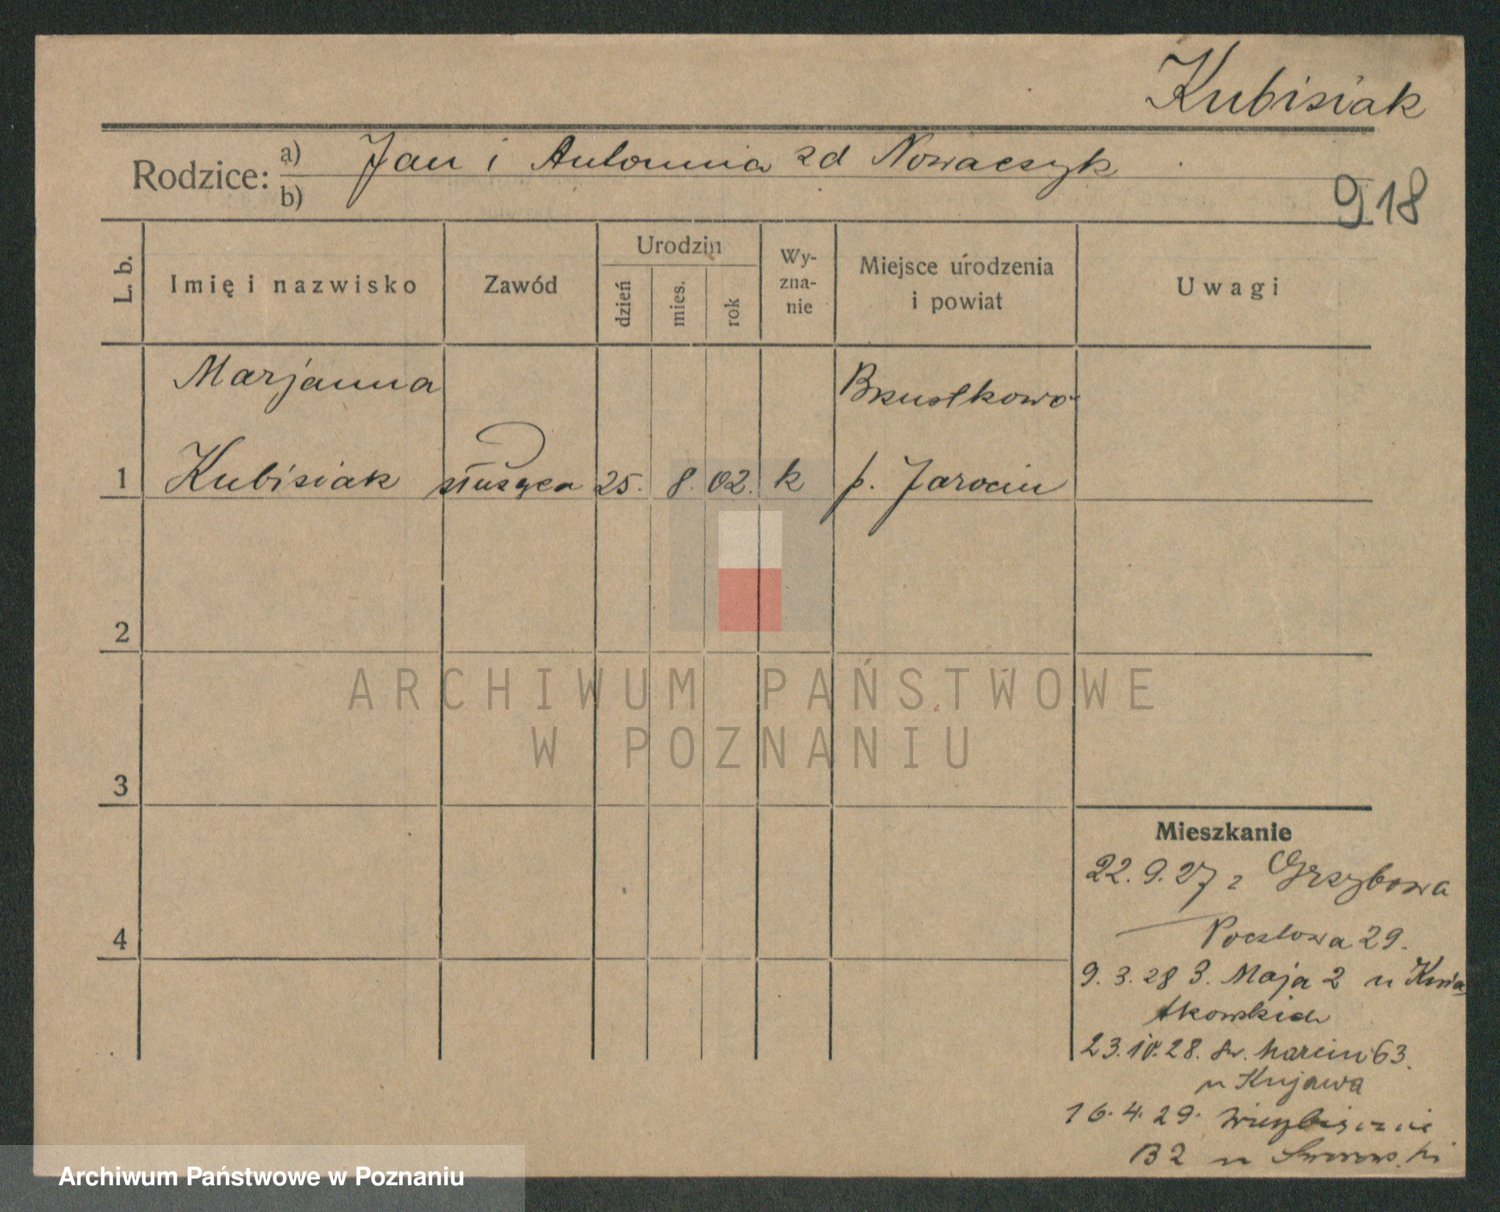 Kubisiak
Rodzice: a) Jan i Antonina zd Nowaczyk
b)
918
L. b.
Imię i nazwisko
Zawód
Urodzin
dzień
mies.
rok
Wy-
zna-
nie
Miejsce urodzenia
i powiat
Uwagi
Marjanna
Brzustkowo
1 Kubisiak służąca 25. 8. 02. k p. Jarocin
2
ARCHIWUM PAŃSTWOWE
W POZNANIU
3
Mieszkanie
22.9.27 z Grzybowa
4
Pocztowa 29.
9.3.28 3. Maja 2 u Kwia
tkowskich
23.10.28. św. Marcin 63.
u Kujawa
16.4.29.
B2 u
Archiwum Państwowe w Poznaniu